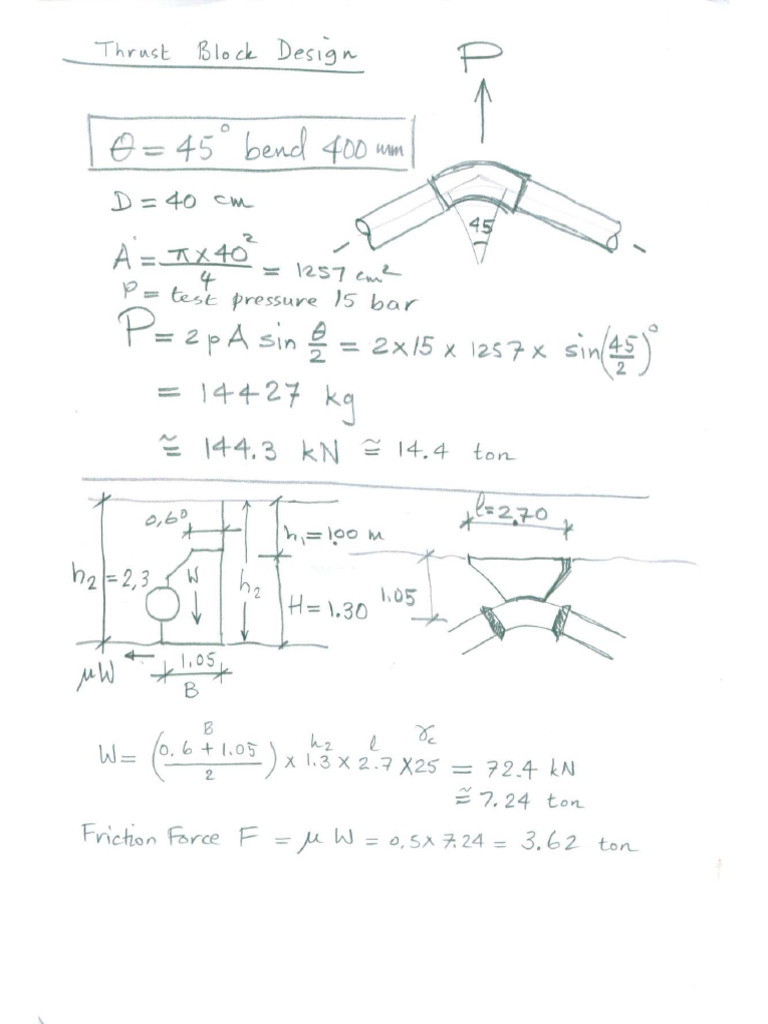 Thrust Block Design
P
θ = 45° bend 400 mm
D = 40 cm
45
A = π×40²/4 = 1257 cm²
P = test pressure 15 bar
P = 2pA sin θ/2 = 2×15 × 1257 × sin(45/2)°
= 14427 kg
≅ 144.3 kN ≅ 14.4 ton
0,60
h₁=1.00 m
l=2,70
h₂=2,3
W
h₂
H=1.30
1.05
μW
1.05
B
B h₂ l γc
W = (0.6+1.05/2) × 1.3 × 2.7 ×25 = 72.4 kN
≅ 7.24 ton
Friction Force F = μW = 0,5× 7.24 = 3.62 ton